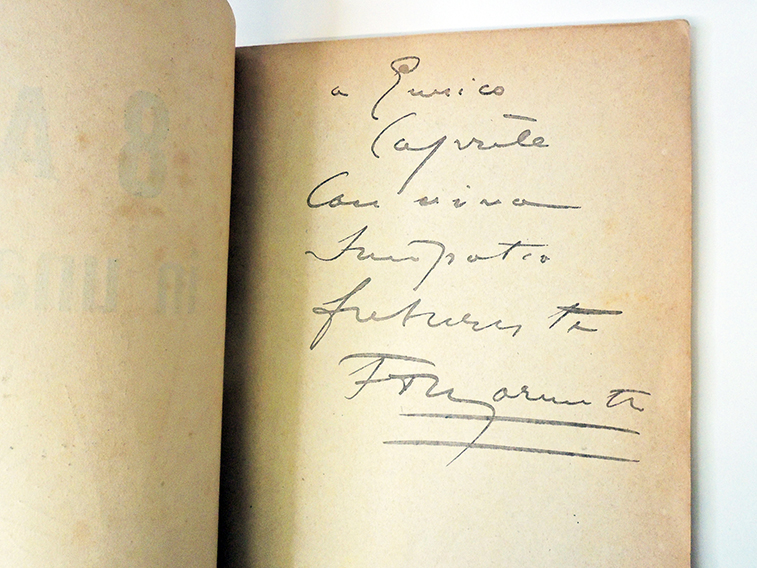 a Enrico
Con viva
Simpatia
futurista
F T Marinetti